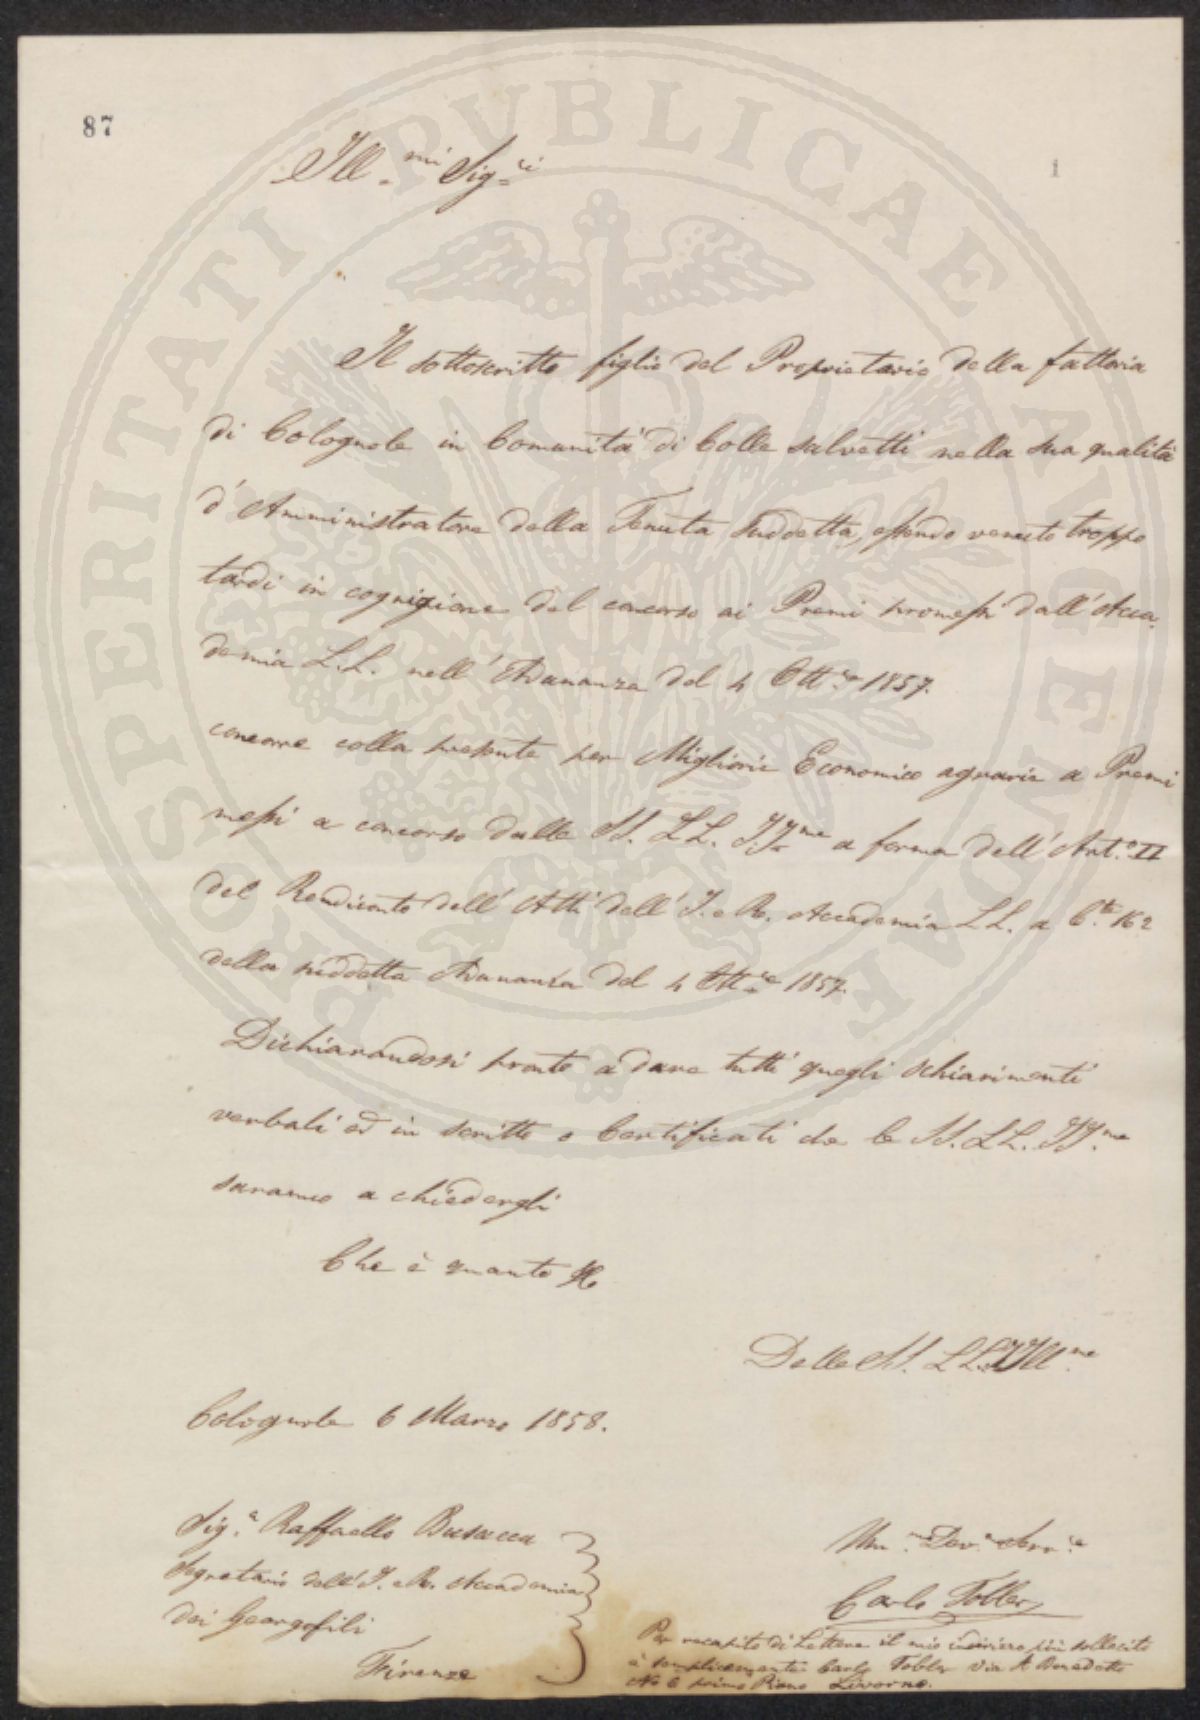 87
1
Ill.mi Sig.ri
Il sottoscritto figlio del Proprietario della fattoria
di Colognole in Comunità di Colle salvetti nella sua qualità
d'Amministratore della Tenuta Suddetta, essendo venuto troppo
tardi in cognizione del concorso ai Premi promessi dall'Acca
demia L.L. nell'Adunanza del 4 Ott.re 1857.
concorre colla presente per Migliorie Economico agrarie a Premi
messi a concorso dalle SS. LL. II.me a forma dell'Art.o II
del Rendiconto dell'Atti dell'I. e R. Accademia LL. a C.te 162
della suddetta Adunanza del 4 Ott.re 1857.
Dichiarandosi pronto a dare tutti quegli schiarimenti
verbali ed in scritto o Certificati che le SS. LL. II.me
saranno a chiedergli
Che è quanto
Delle SS. LL. Ill.me
Colognole 6 Marzo 1858.
Sig.e Raffaello Busacca
Segretario dell'I. e R. Accademia
dei Georgofili
Firenze
Um.mo Dev.o Serv.e
Carlo Tobler
Per recapito di Lettere il mio indirizzo più sollecito
è semplicemente Carlo Tobler Via S Benedetto
No 6 primo Piano Livorno.
PROSPERITATI PUBLICAE AUGENDAE